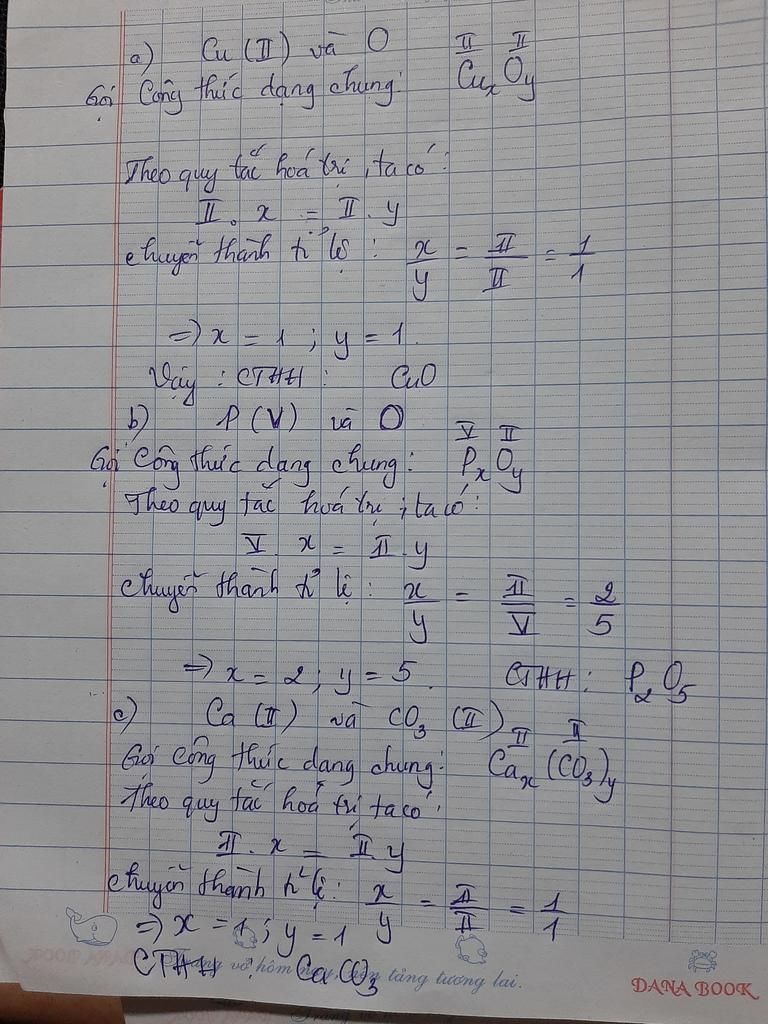 a) Cu (II) và O II II
Gọi Công thức dạng chung: CuxOy
Theo quy tắc hoá trị, ta có:
II. x = II. y
chuyển thành tỉ lệ: x/y = II/II = 1/1
=> x = 1; y = 1.
Vậy: CTHH: CuO
b) P (V) và O V II
Gọi Công thức dạng chung: PxOy
Theo quy tắc hoá trị, ta có:
V. x = II. y
chuyển thành tỉ lệ: x/y = II/V = 2/5
=> x = 2; y = 5. CTHH: P2O5
c) Ca (II) và CO3 (II) II II
Gọi Công thức dạng chung: Cax(CO3)y
Theo quy tắc hoá trị, ta có:
II. x = II. y
chuyển thành tỉ lệ: x/y = II/II = 1/1
=> x = 1; y = 1
CTHH: CaCO3
Trang vở hôm nay, nền tảng tương lai.
DANA BOOK